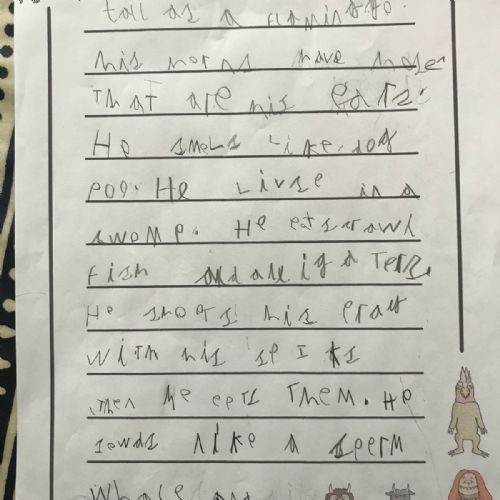 tall as a flaminggo.
his horns have holes
that are his ears.
He smels like dog
poo. He livse in a
swomp. He eats rawh
fish and
He shoots his pray
with his spiks
then he eets them. He
sowds like a sperm
whale and